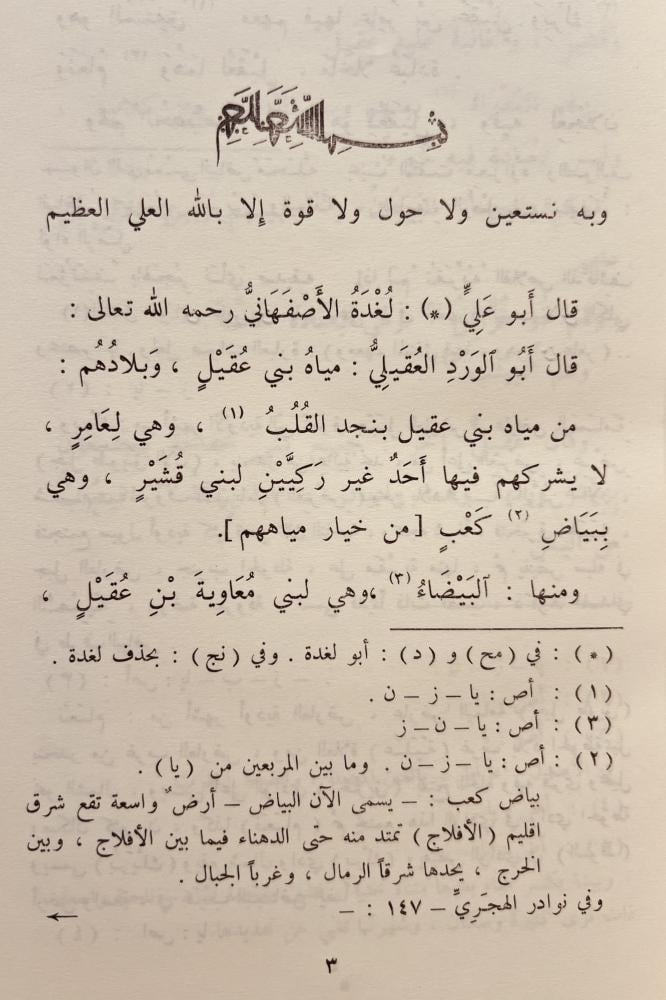 بسم الله الرحمن الرحيم
وبه نستعين ولا حول ولا قوة إلا بالله العلي العظيم
قال أَبو عَلِيٍّ (*) : لُغْدَةُ الأَصْفَهَانيُّ رحمه الله تعالى :
قال أَبُو الوَرْدِ العُقَيلِيُّ : مياهُ بني عُقَيْلٍ ، وَبلادُهُم :
من مياه بني عقيل بنجد القُلُبُ (١) ، وهي لِعَامِرٍ ،
لا يشركهم فيها أَحَدٌ غير رَكِيَّيْنِ لبني قُشَيْرٍ ، وهي
بِبَيَاضِ (٢) كَعْبٍ [من خيار مياههم].
ومنها : البَيْضَاءُ (٣) ،وهي لبني مُعَاوِيةَ بْنِ عُقَيْلٍ ،
(*) : في (مح) و (د) : أبو لغدة . وفي (نج) : بحذف لغدة .
(١) : أص : يا – ز – ن .
(٣) : أص : يا – ن – ز
(٢) : أص : يا – ز – ن . وما بين المربعين من (يا) .
بياض كعب : – يسمى الآن البياض – أرض ٌ واسعة تقع شرق
اقليم (الأفلاج) تمتد منه حتى الدهناء فيما بين الأفلاج ، وبين
الخرج ، يحدها شرقاً الرمال ، وغرباً الجبال .
وفي نوادر الهجَريِّ – ١٤٧ : –
٣